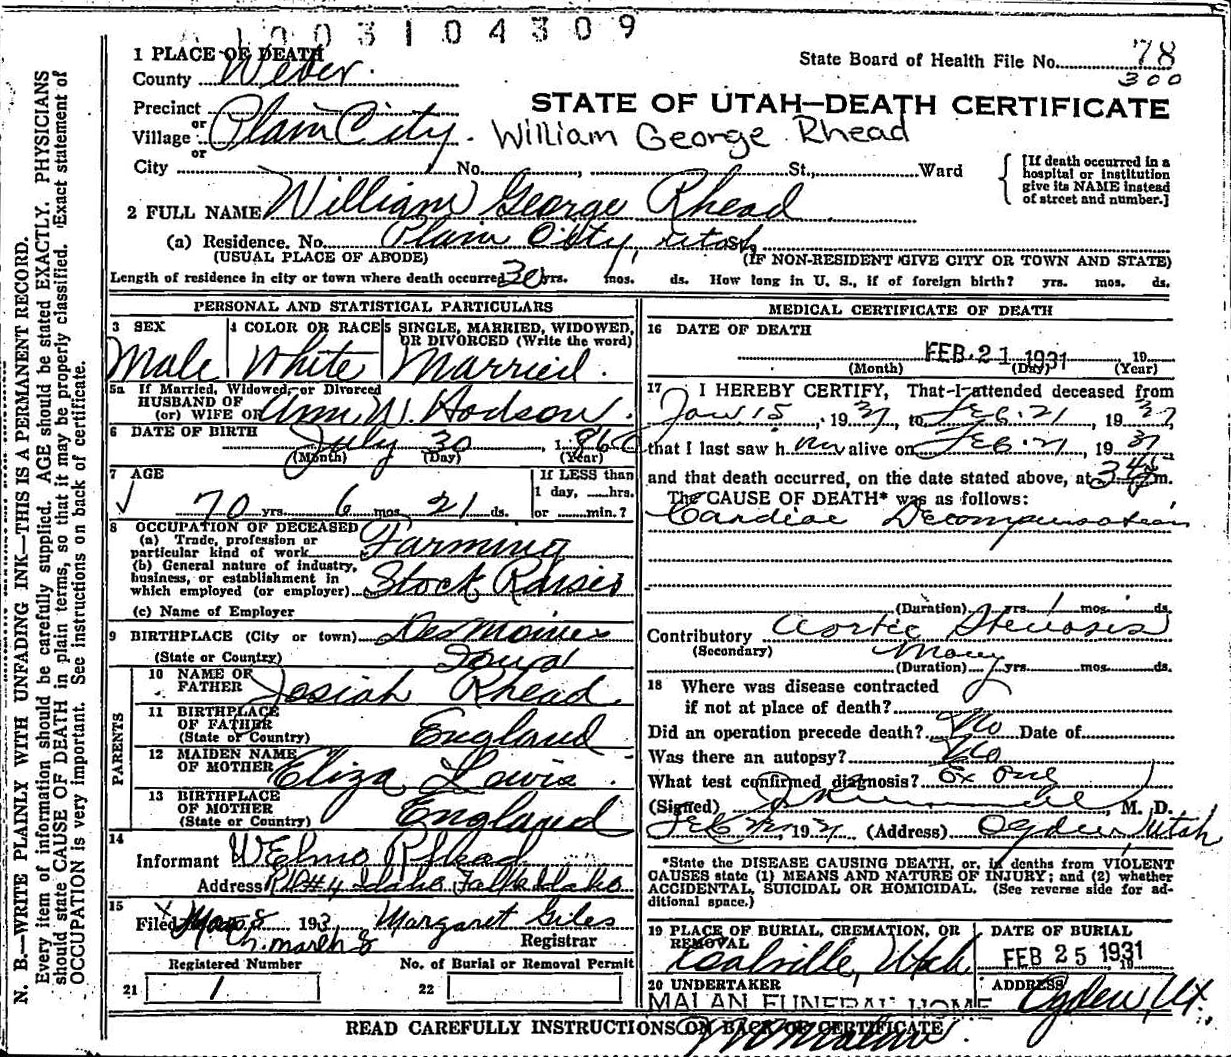 1003104309
1 PLACE OF DEATH
County Weber.
State Board of Health File No. 78
300
Precinct
or
Village Plain City.
or
STATE OF UTAH—DEATH CERTIFICATE
William George Rhead
City No. , St., Ward
[If death occurred in a
hospital or institution
give its NAME instead
of street and number.]
2 FULL NAME William George Rhead
(a) Residence. No. Plain City, Utah
(USUAL PLACE OF ABODE) (IF NON-RESIDENT GIVE CITY OR TOWN AND STATE)
Length of residence in city or town where death occurred 30 yrs. mos. ds. How long in U. S., if of foreign birth? yrs. mos. ds.
PERSONAL AND STATISTICAL PARTICULARS
3 SEX
Male
4 COLOR OR RACE
White
5 SINGLE, MARRIED, WIDOWED,
OR DIVORCED (Write the word)
Married.
5a If Married, Widowed, or Divorced
HUSBAND OF
(or) WIFE OF Ann W. Hodson.
6 DATE OF BIRTH July 30, 1860
(Month) (Day) (Year)
7 AGE
70 yrs. 6 mos. 21 ds.
If LESS than
1 day, hrs.
or min.?
8 OCCUPATION OF DECEASED
(a) Trade, profession or
particular kind of work Farming
(b) General nature of industry,
business, or establishment in
which employed (or employer) Stock Raiser
(c) Name of Employer
9 BIRTHPLACE (City or town) Des Moines
(State or Country) Iowa
PARENTS
10 NAME OF
FATHER Josiah Rhead
11 BIRTHPLACE
OF FATHER
(State or Country) England
12 MAIDEN NAME
OF MOTHER Eliza Lewis.
13 BIRTHPLACE
OF MOTHER
(State or Country) England
14
Informant W Elmo Rhead
Address R.D. #4 Idaho Falls Idaho
15
Filed Mar 8 193 Margaret Giles
march 8 Registrar
Registered Number No. of Burial or Removal Permit
21 1 22
MEDICAL CERTIFICATE OF DEATH
16 DATE OF DEATH
FEB. 21 1931 19
(Month) (Day) (Year)
17 I HEREBY CERTIFY, That I attended deceased from
Jan 15, 1931, to Feb. 21, 1931
that I last saw him alive on Feb. 21, 1931
and that death occurred, on the date stated above, at 3 45 m.
The CAUSE OF DEATH* was as follows:
Cardiac Decompensation
(Duration) yrs. 1 mos. ds.
Contributory Aortic Stenosis
(Secondary) Many
(Duration) yrs. mos. ds.
18 Where was disease contracted
if not at place of death?
Did an operation precede death? No Date of
Was there an autopsy? No
What test confirmed diagnosis?
(Signed) M. D.
Feb 1931 (Address) Ogden Utah
*State the DISEASE CAUSING DEATH, or, in deaths from VIOLENT
CAUSES state (1) MEANS AND NATURE OF INJURY; and (2) whether
ACCIDENTAL, SUICIDAL OR HOMICIDAL. (See reverse side for ad-
ditional space.)
19 PLACE OF BURIAL, CREMATION, OR
REMOVAL
Coalville, Utah
DATE OF BURIAL
FEB 25 1931 19
20 UNDERTAKER
MALAN FUNERAL HOME
ADDRESS
Ogden, Ut.
READ CAREFULLY INSTRUCTIONS ON BACK OF CERTIFICATE
N. B.—WRITE PLAINLY WITH UNFADING INK—THIS IS A PERMANENT RECORD.
Every item of information should be carefully supplied. AGE should be stated EXACTLY. PHYSICIANS
should state CAUSE OF DEATH in plain terms, so that it may be properly classified. Exact statement of
OCCUPATION is very important. See instructions on back of certificate.